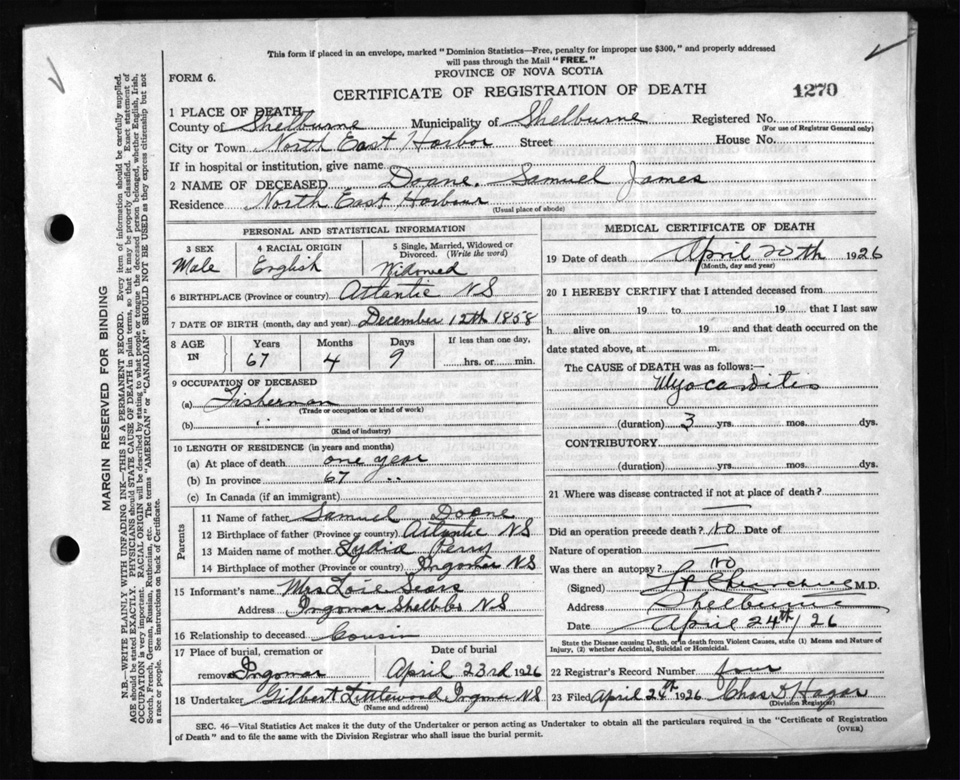 This form if placed in an envelope, marked "Dominion Statistics—Free, penalty for improper use $300," and properly addressed
will pass through the Mail "FREE."
PROVINCE OF NOVA SCOTIA
FORM 6.
CERTIFICATE OF REGISTRATION OF DEATH
1270
1 PLACE OF DEATH
County of Shelburne Municipality of Shelburne Registered No.
(For use of Registrar General only)
City or Town North East Harbor Street House No.
If in hospital or institution, give name
2 NAME OF DECEASED Doane, Samuel James
Residence North East Harbour
(Usual place of abode)
PERSONAL AND STATISTICAL INFORMATION
3 SEX 4 RACIAL ORIGIN 5 Single, Married, Widowed or
Divorced. (Write the word)
Male English Widowed
6 BIRTHPLACE (Province or country) Atlantic NS
7 DATE OF BIRTH (month, day and year) December 12th 1858
8 AGE IN Years Months Days If less than one day,
67 4 9 hrs. or min.
9 OCCUPATION OF DECEASED
(a) Fisherman
(Trade or occupation or kind of work)
(b) "
(Kind of industry)
10 LENGTH OF RESIDENCE (in years and months)
(a) At place of death one year
(b) In province 67 "
(c) In Canada (if an immigrant)
Parents
11 Name of father Samuel Doane
12 Birthplace of father (Province or country) Atlantic NS
13 Maiden name of mother Lydia Perry
14 Birthplace of mother (Province or country) Ingomar NS
15 Informant's name Mrs
Address Ingomar NS
16 Relationship to deceased Cousin
17 Place of burial, cremation or Date of burial
removal Ingomar April 23rd 1926
18 Undertaker Gilbert Littlewood Ingomar NS
(Name and address)
MEDICAL CERTIFICATE OF DEATH
19 Date of death April 20th 1926
(Month, day and year)
20 I HEREBY CERTIFY that I attended deceased from
19 to 19 that I last saw
h alive on 19 and that death occurred on the
date stated above, at m.
The CAUSE of DEATH was as follows:—
Myocarditis
(duration) 3 yrs. mos. dys.
CONTRIBUTORY
(duration) yrs. mos. dys.
21 Where was disease contracted if not at place of death?
Did an operation precede death? No Date of
Nature of operation —
Was there an autopsy? No
(Signed) Churchill M.D.
Address Shelburne
Date April 24th/26
State the Disease causing Death, or in death from Violent Causes, state (1) Means and Nature of
Injury, (2) whether Accidental, Suicidal or Homicidal.
22 Registrar's Record Number four
23 Filed April 1926 Chas
(Division Registrar)
SEC. 46—Vital Statistics Act makes it the duty of the Undertaker or person acting as Undertaker to obtain all the particulars required in the "Certificate of Registration
of Death" and to file the same with the Division Registrar who shall issue the burial permit.
(OVER)
MARGIN RESERVED FOR BINDING
N.B.—WRITE PLAINLY WITH UNFADING INK—THIS IS A PERMANENT RECORD. Every item of information should be carefully supplied.
AGE should be stated EXACTLY. PHYSICIANS should STATE CAUSE OF DEATH in plain terms, so that it may be properly classified. Exact statement of
OCCUPATION is very important. RACIAL ORIGIN will be described by stating to what people or tongue the deceased person belonged, whether English, Irish,
Scotch, French, German, Russian, Ruthenian, etc. The terms "AMERICAN" or "CANADIAN" SHOULD NOT BE USED as they express citizenship but not
a race or people. See instructions on back of Certificate.